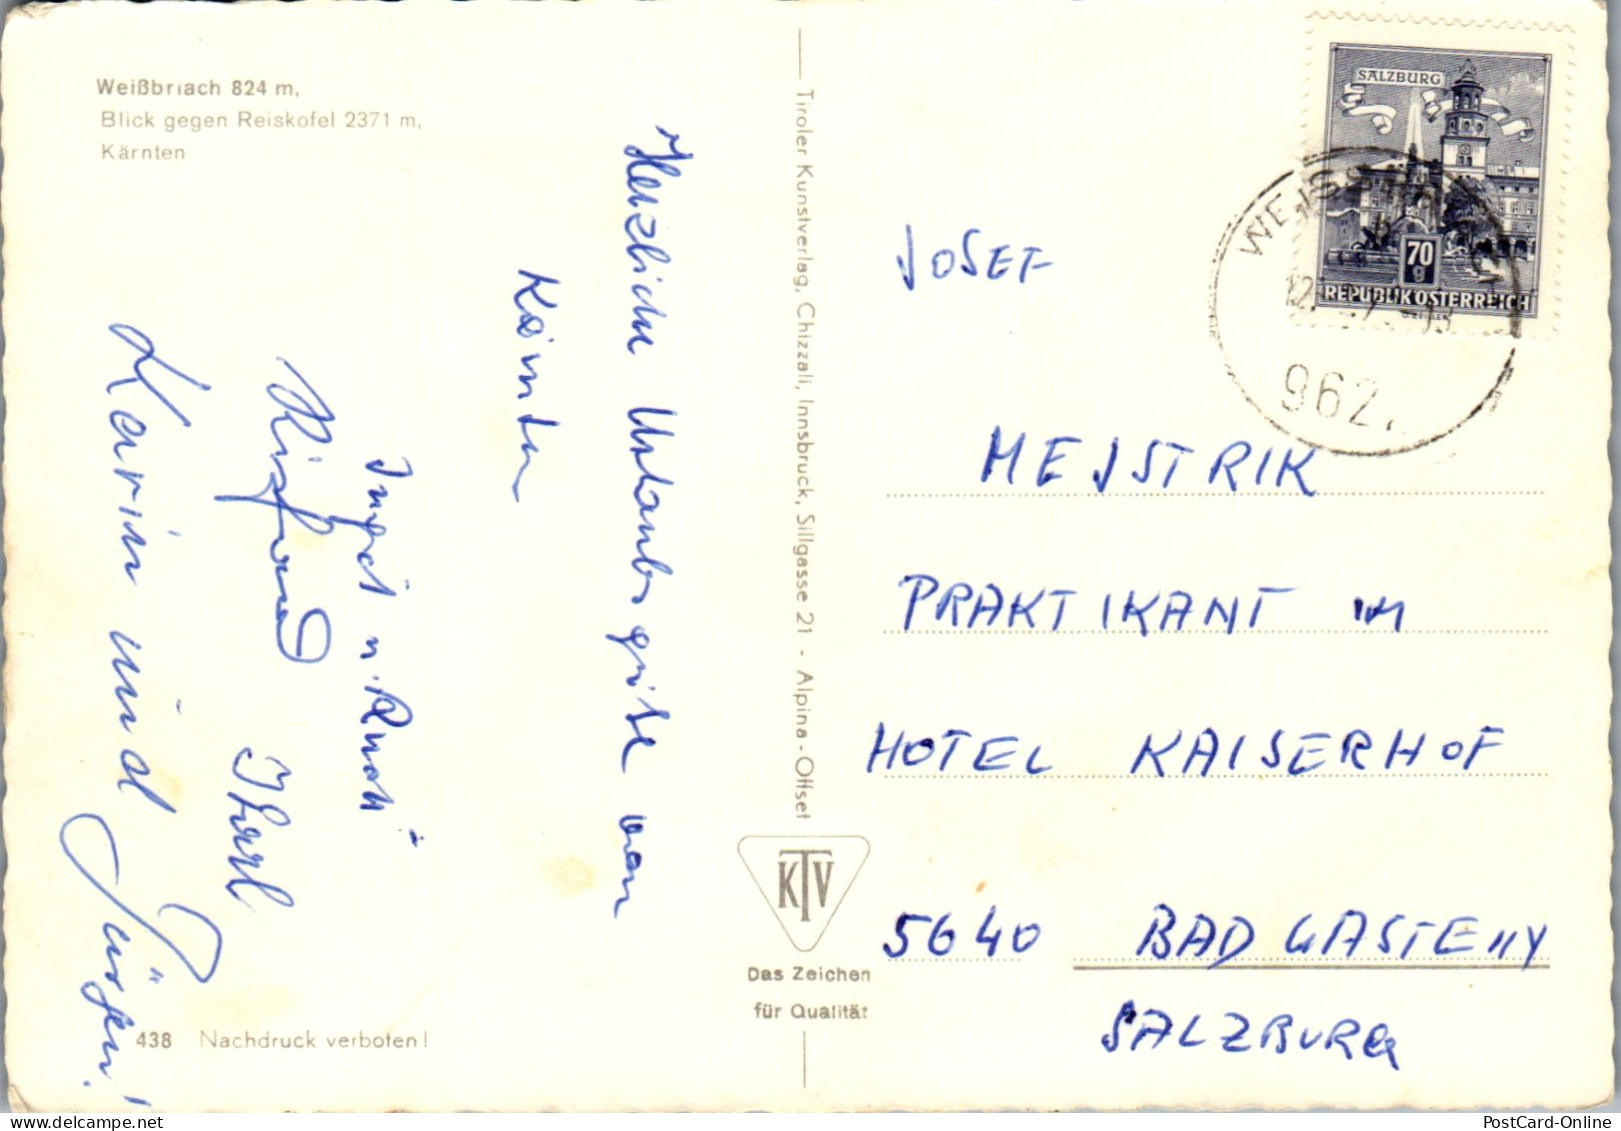 Weißbriach 824 m,
Blick gegen Reiskofel 2371 m,
Kärnten
Herzliche Urlaubsgrüße von
Kärnten
Ingrid u. Rudi
Karl
Karin und Jürgen!
438 Nachdruck verboten!
Tiroler Kunstverlag, Chizzali, Innsbruck, Sillgasse 21 - Alpina-Offset
KTV
Das Zeichen
für Qualität
SALZBURG
70
g
REPUBLIK ÖSTERREICH
962
JOSEF
MEJSTRIK
PRAKTIKANT IM
HOTEL KAISERHOF
5640 BAD GASTEIN
SALZBURG
PostCard-Online